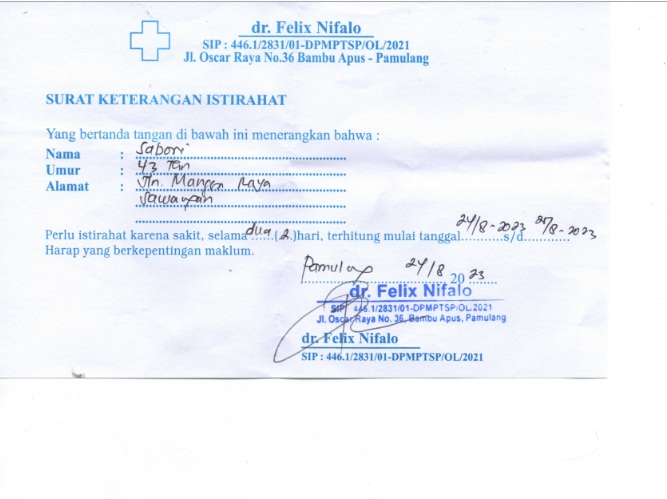 dr. Felix Nifalo
SIP : 446.1/2831/01-DPMPTSP/OL/2021
Jl. Oscar Raya No.36 Bambu Apus - Pamulang
SURAT KETERANGAN ISTIRAHAT
Yang bertanda tangan di bawah ini menerangkan bahwa :
Nama : Sabori
Umur : 43 Thn
Alamat : Jln. Mangga Raya
Sawangan
Perlu istirahat karena sakit, selama dua (2) hari, terhitung mulai tanggal 24/8-2023 s/d 25/8-2023
Harap yang berkepentingan maklum.
Pamulang 24/8 2023
dr. Felix Nifalo
SIP : 446.1/2831/01-DPMPTSP/OL/2021
Jl. Oscar Raya No. 36, Bambu Apus, Pamulang
dr. Felix Nifalo
SIP : 446.1/2831/01-DPMPTSP/OL/2021